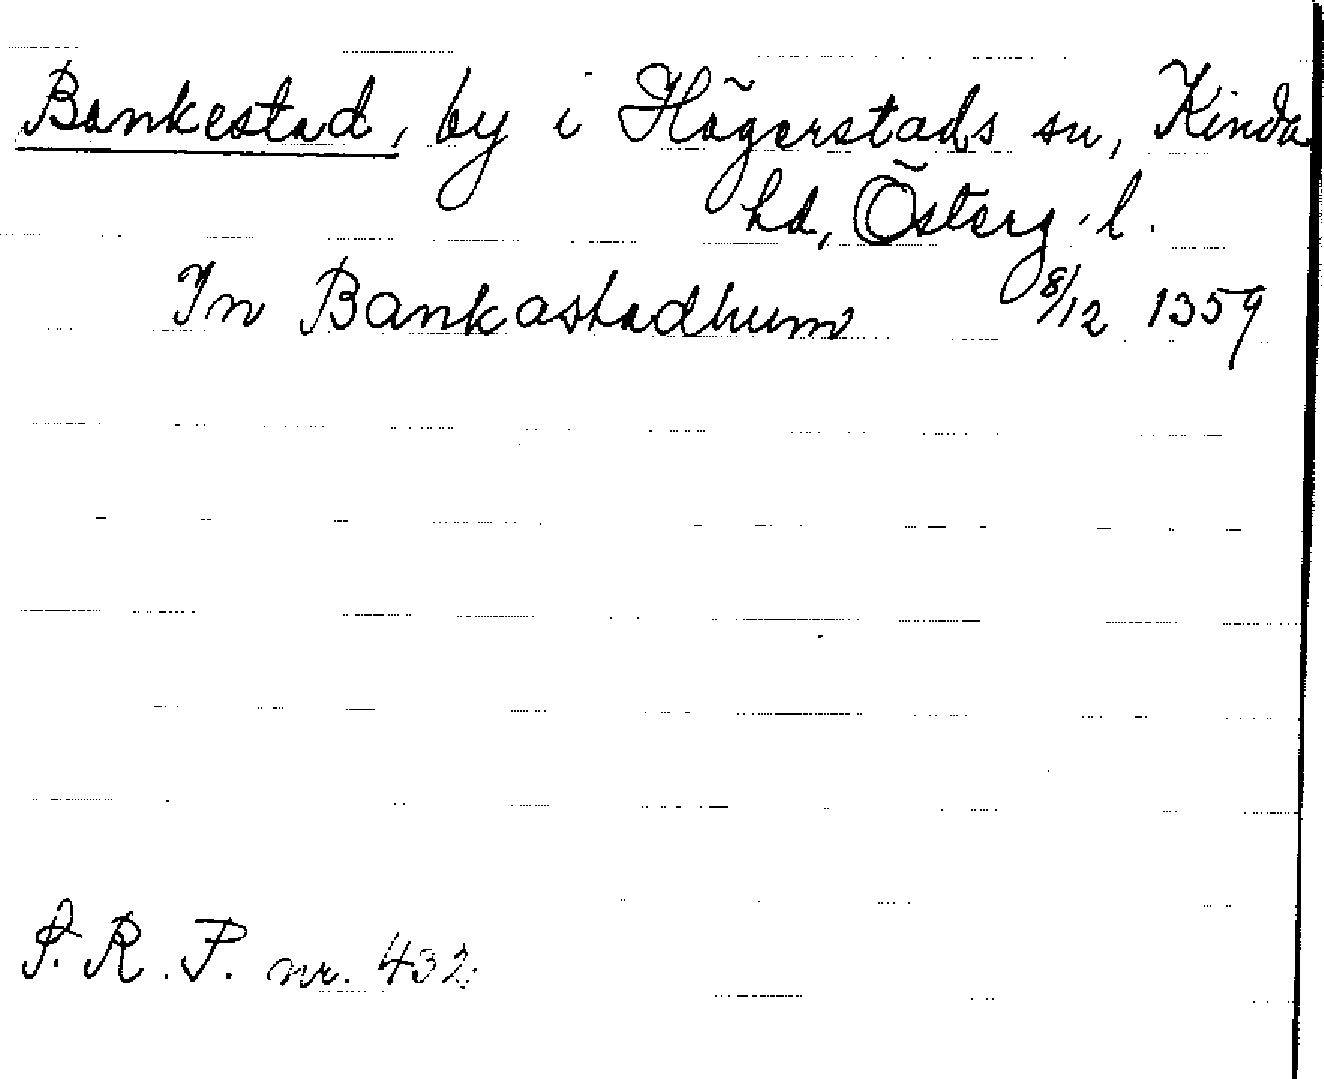 Bankestad, by i Högerstads sn, Kinda
hd, Österg. l.
In Bankastadhum 8/12 1359
S. R. P. nr. 432